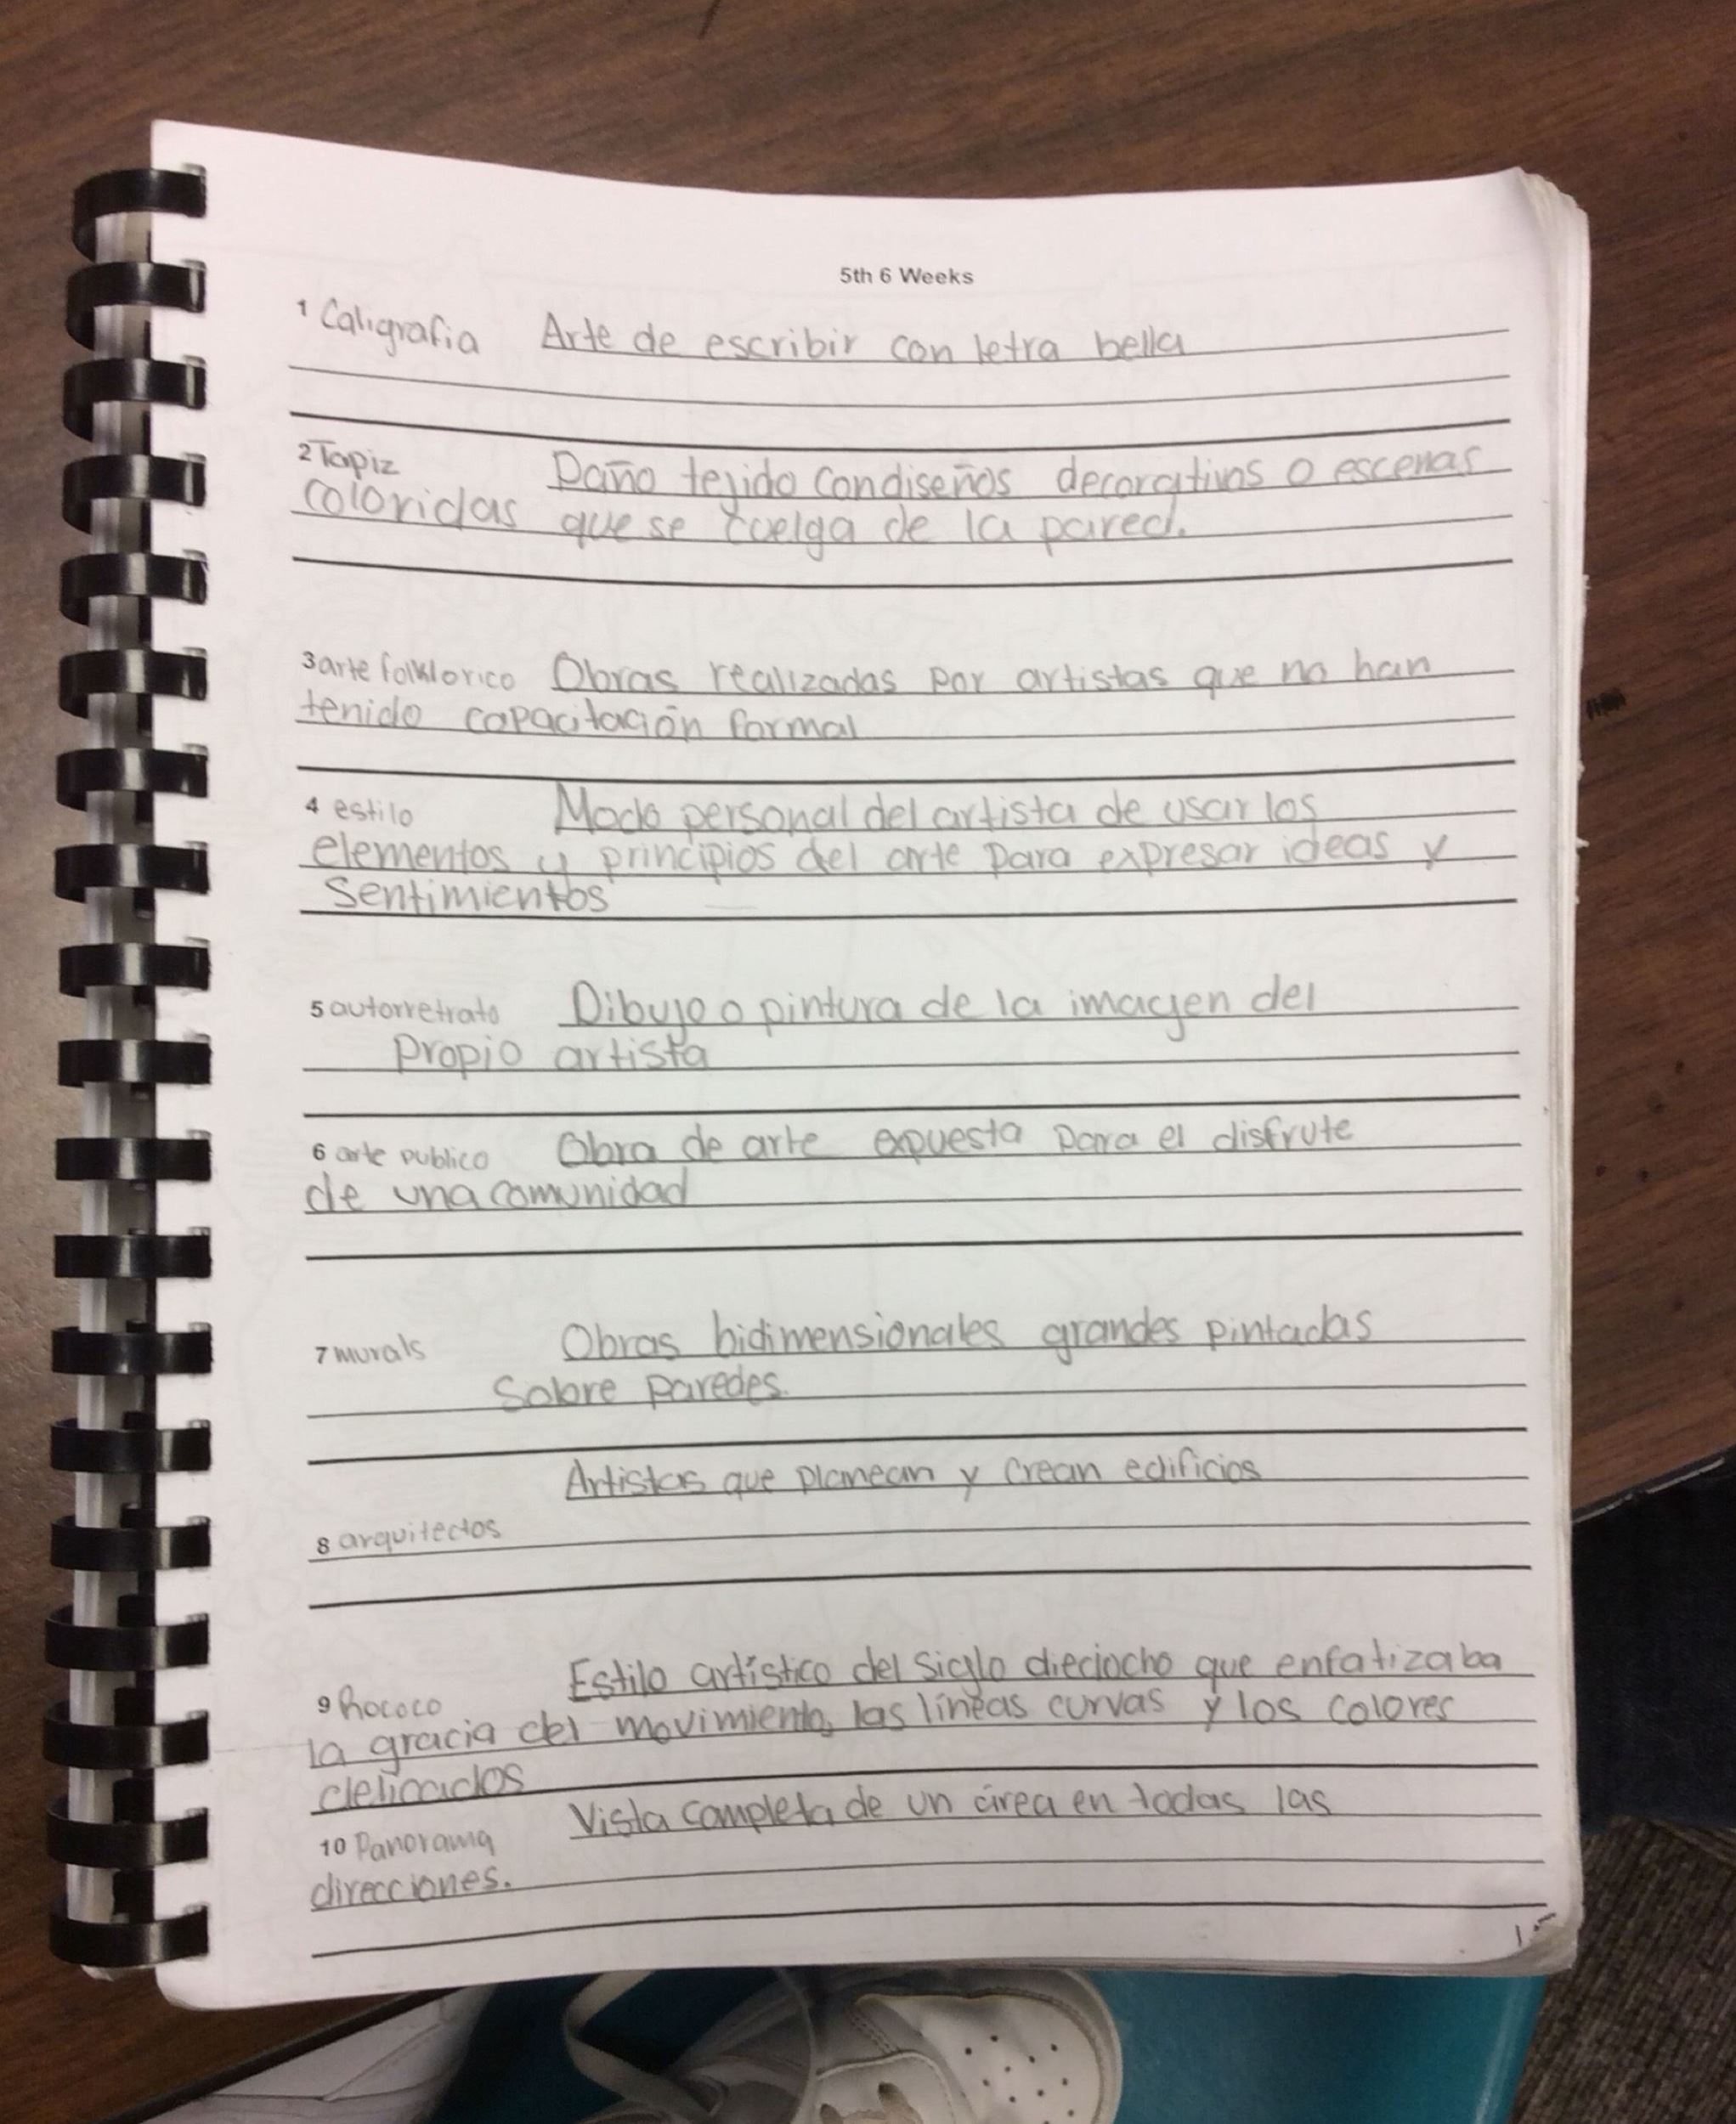 5th 6 Weeks
1 Caligrafia Arte de escribir con letra bella
2 Tapiz Paño tejido con diseños decorativos o escenas
coloridas que se cuelga de la pared.
3 arte folklorico Obras realizadas por artistas que no han
tenido capacitación formal
4 estilo Modo personal del artista de usar los
elementos y principios del arte para expresar ideas y
Sentimientos
5 autorretrato Dibujo o pintura de la imagen del
Propio artista
6 arte publico Obra de arte expuesta para el disfrute
de una comunidad
7 murals Obras bidimensionales grandes pintadas
Sobre paredes.
Artistas que planean y crean edificios
8 arquitectos
Estilo artístico del Siglo dieciocho que enfatizaba
9 Rococo
la gracia del movimiento, las líneas curvas y los colores
delicados
Vista completa de un área en todas las
10 Panorama
direcciones.